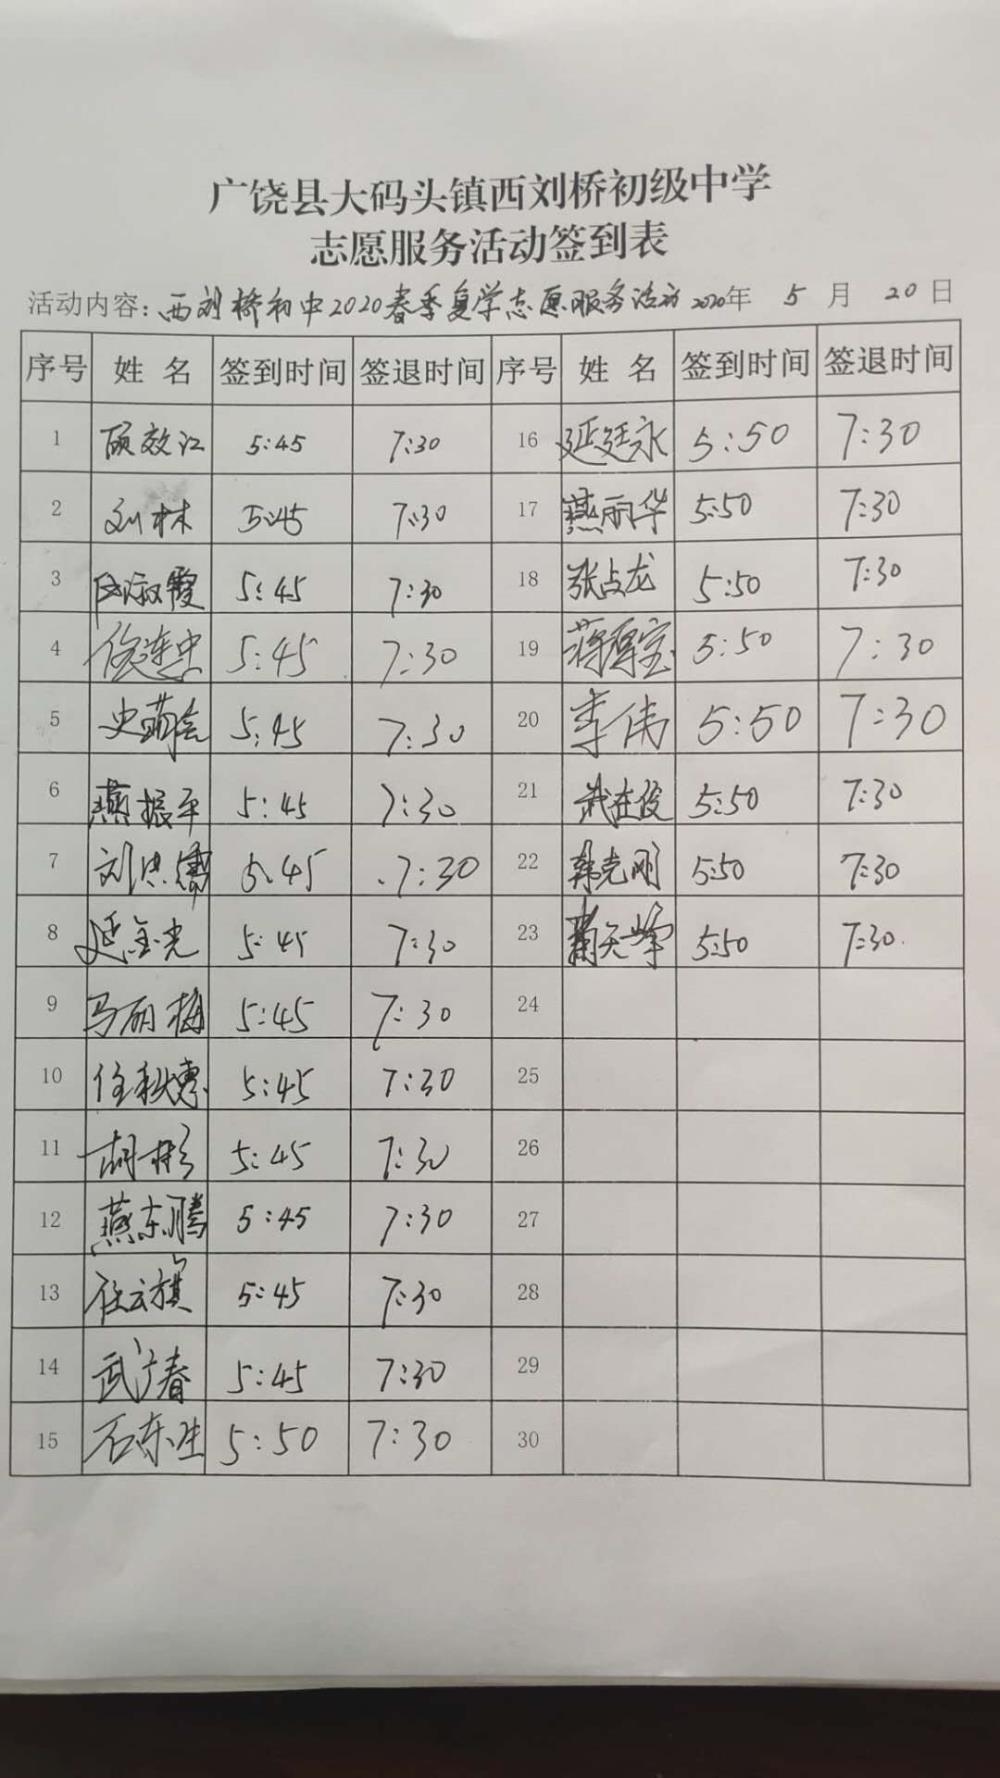 广饶县大码头镇西刘桥初级中学
志愿服务活动签到表
活动内容：西刘桥初中2020春季复学志愿服务活动 2020年 5 月 20 日
序号 姓名 签到时间 签退时间 序号 姓名 签到时间 签退时间
1 顾效江 5:45 7:30 16 延廷永 5:50 7:30
2 刘林 5:45 7:30 17 燕丽华 5:50 7:30
3 5:45 7:30 18 张占龙 5:50 7:30
4 徐连忠 5:45 7:30 19 5:50 7:30
5 5:45 7:30 20 李伟 5:50 7:30
6 燕振平 5:45 7:30 21 5:50 7:30
7 5:45 7:30 22 韩克刚 5:50 7:30
8 延金光 5:45 7:30 23 5:50 7:30
9 马丽梅 5:45 7:30 24
10 任秋惠 5:45 7:30 25
11 胡彬 5:45 7:30 26
12 燕东腾 5:45 7:30 27
13 任云旗 5:45 7:30 28
14 武广春 5:45 7:30 29
15 石东生 5:50 7:30 30